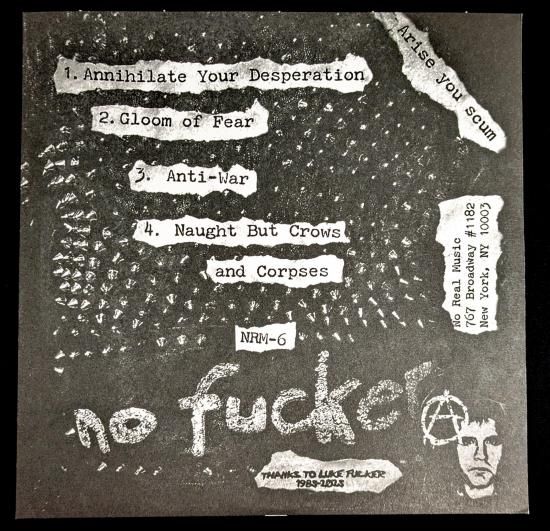 Arise you scum
1. Annihilate Your Desperation
2. Gloom of Fear
3. Anti-War
4. Naught But Crows
and Corpses
No Real Music
767 Broadway #1182
New York, NY 10003
NRM-6
no fucker
THANKS TO LUKE FUCKER
1983-2023